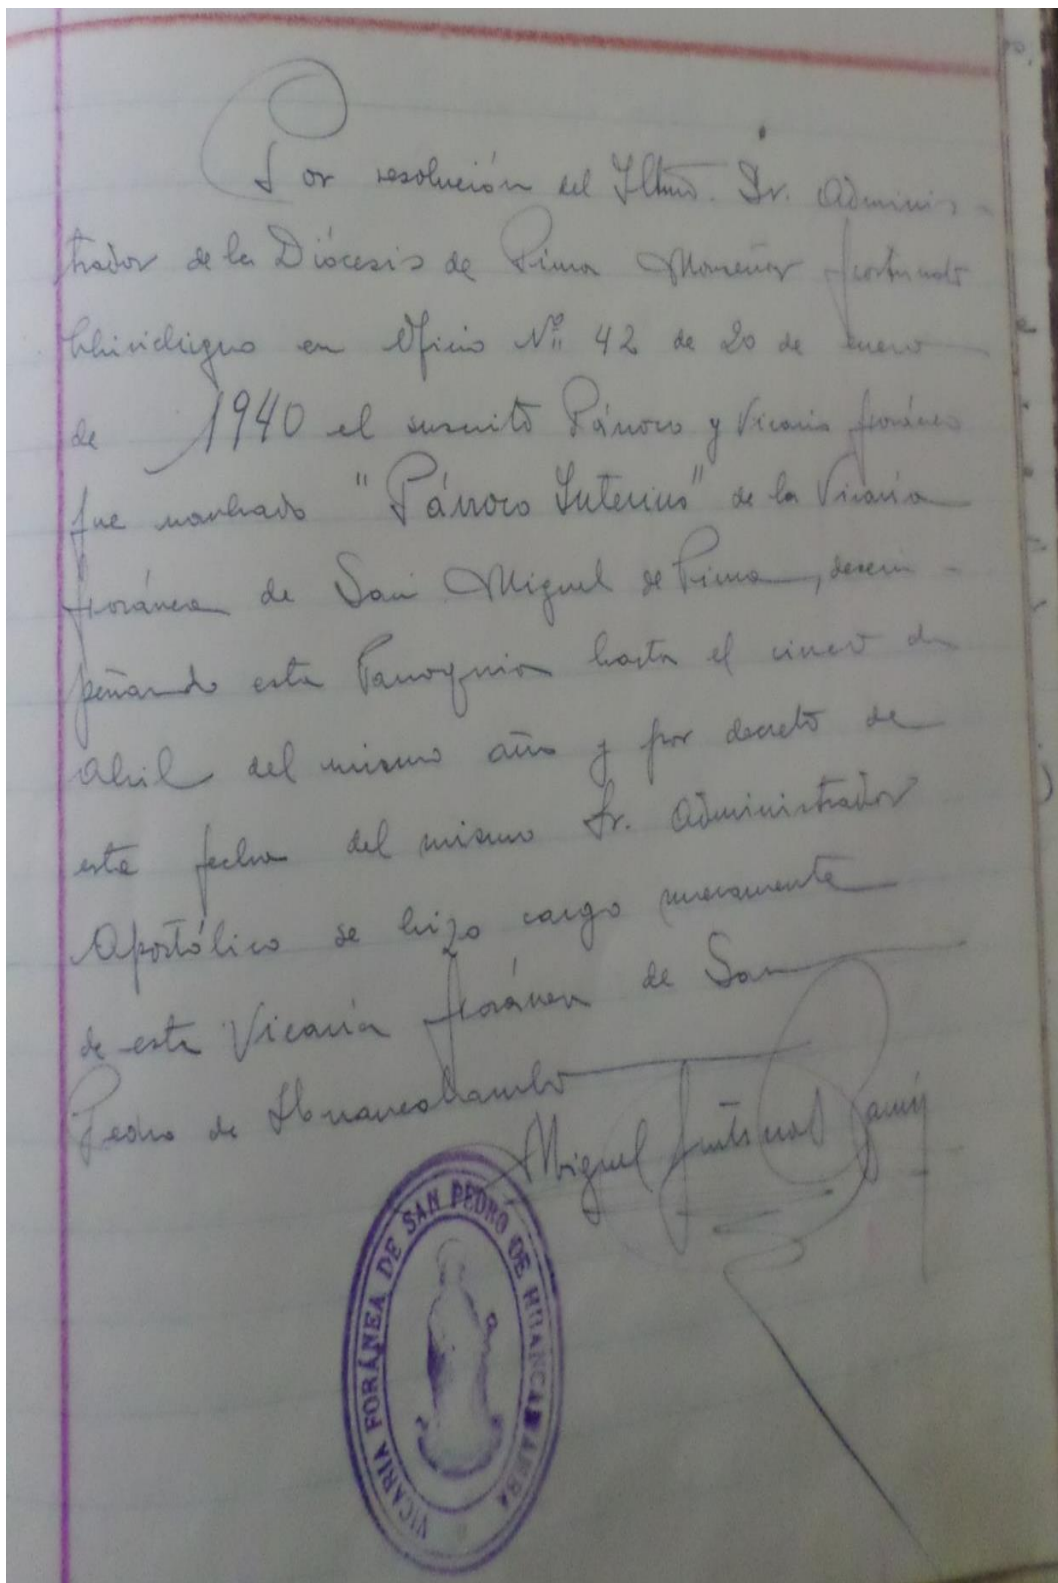 Por resolución del Iltmo. Sr. Adminis-
trador de la Diócesis de Piura Monseñor Fortunato
Chirichigno en Oficio Nº 42 de 20 de enero
de 1940 el suscrito Párroco y Vicario foráneo
fue nombrado "Párroco Interino" de la Vicaría
foránea de San Miguel de Piura, desem-
peñando esta Parroquia hasta el cinco de
Abril del mismo año y por decreto de
esta fecha del mismo Sr. Administrador
Apostólico se hizo cargo nuevamente
de esta Vicaría foránea de San
Pedro de Huancabamba
Miguel
VICARIA FORÁNEA DE SAN PEDRO DE HUANCABAMBA